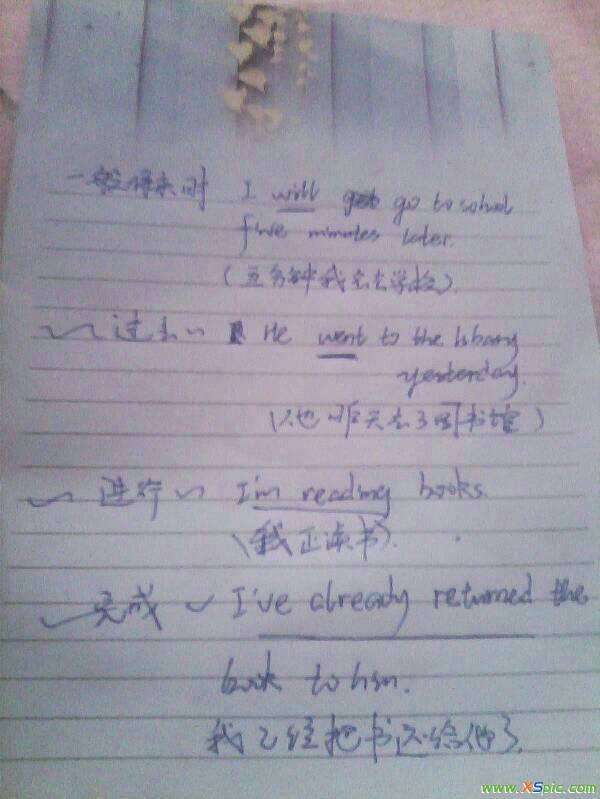 一般将来时 I will go to school
five minutes later.
(五分钟我会去学校)
~~过去~ He went to the library
yesterday.
(他昨天去了图书馆)
~进行~ I'm reading books.
(我正读书).
~完成~ I've already returned the
book to him.
我已经把书还给他了.
www.XSpic.com